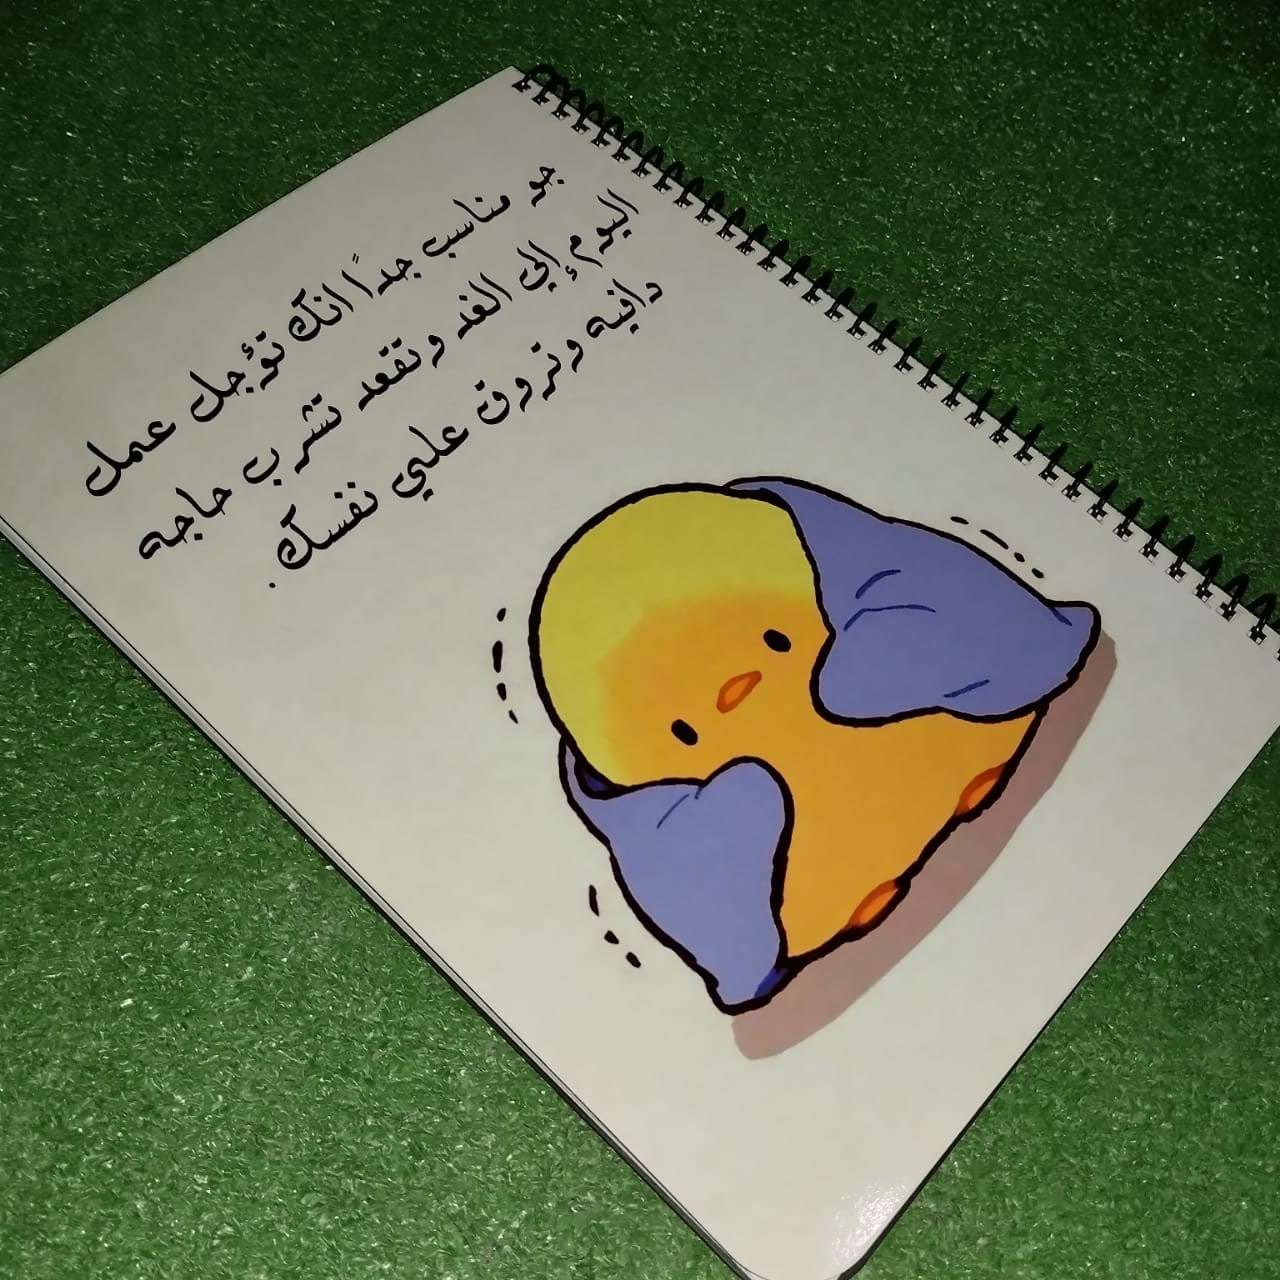 جو مناسب جداً انك تؤجل عمل
اليوم إلي الغد وتقعد تشرب حاجه
دافيه وتروق علي نفسك.